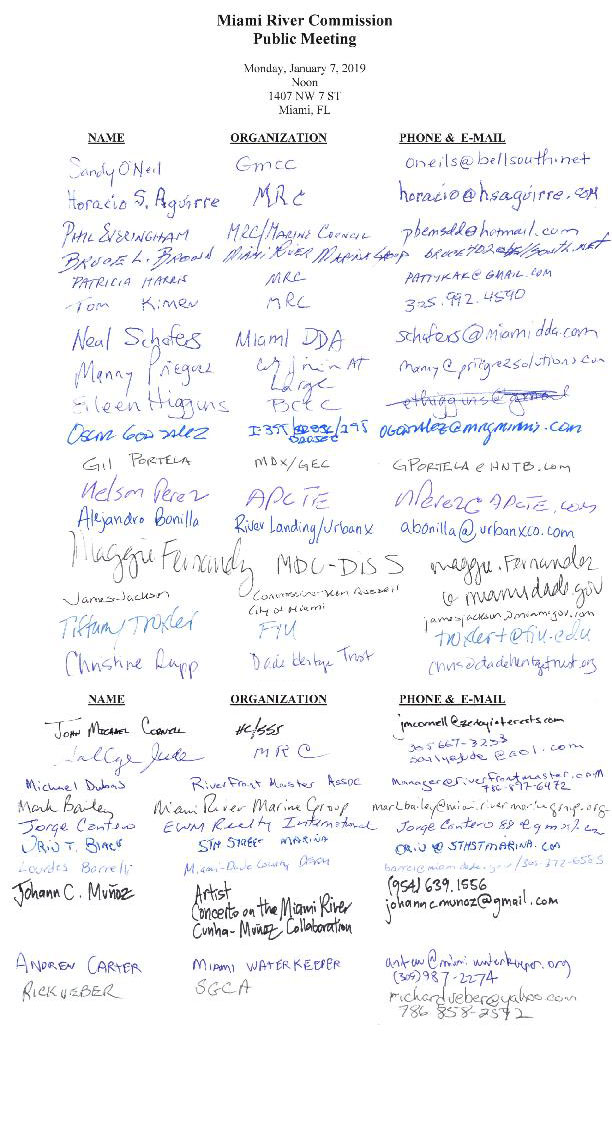 Miami River Commission
Public Meeting
Monday, January 7, 2019
Noon
1407 NW 7 ST
Miami, FL
NAME ORGANIZATION PHONE & E-MAIL
Sandy O'Neil GMCC oneils@bellsouth.net
Horacio S. Aguirre MRC horacio@hsaguirre.com
PHIL EVERINGHAM MRC/MARINE COUNCIL pbemsdd@hotmail.com
BRUCE L. BROWN MIAMI RIVER MARINE GROUP
PATRICIA HARRIS MRC PATTYKAKE@GMAIL.COM
Tom Kimen MRC 305.992.4590
Neal Schafers Miami DDA schafers@miamidda.com
Manny Prieguez at Large
Eileen Higgins BCC
Oscar GONZALEZ I-395
Gil PORTELA MDX/GEC GPORTELA@HNTB.COM
Nelson Perez APCTE NPerez@APCTE.com
Alejandro Bonilla River Landing/UrbanX abonilla@urbanxco.com
Maggie Fernandez MDC-DISS maggie.Fernandez
@miamidade.gov
James Jackson Commissioner Ken Russell
City of Miami jamesjackson@miamigov.com
Tiffany Troxler FIU troxlert@fiu.edu
Christine Rupp Dade Heritage Trust chris@dadeheritagetrust.org
NAME ORGANIZATION PHONE & E-MAIL
JOHN MICHAEL CORNELL jmcornell@zerbyinterests.com
MRC 305 667-3253
@aol.com
Michael RiverFront Master Assoc manager@riverfrontmaster.com
786-897-6472
Mark Bailey Miami River Marine Group markbailey@miamirivermarinegroup.org
Jorge Cantero EWM Realty International
ORIN T. BLACK 5TH STREET MARINA ORIN@5THSTMARINA.COM
Lourdes Barrelli Miami-Dade County DERM
Johann C. Muñoz Artist (954) 639.1556
Concerto on the Miami River johanncmunoz@gmail.com
Cunha-Muñoz Collaboration
ANDREW CARTER MIAMI WATERKEEPER andrew@miamiwaterkeeper.org
(305) 987-2274
RICK VEBER SGCA richardveber@yahoo.com
786 858-2592